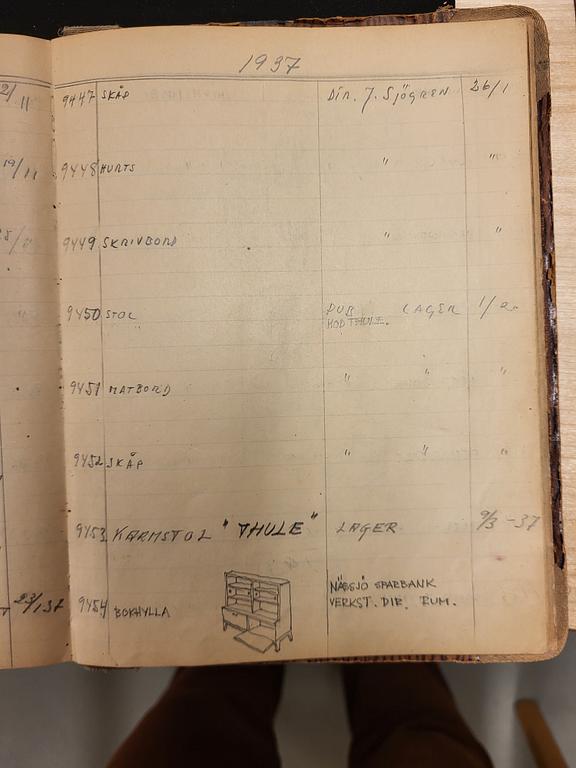 1937
2/11 9447 SKÅP Dir. J. Sjögren 26/1
19/11 9448 HURTS " "
9449 SKRIVBORD " "
9450 STOL PUB LAGER 1/2
MOD THULE.
9451 MATBORD " " "
9452 SKÅP " " "
9453 KARMSTOL "THULE" LAGER 9/3-37
NÄSSJÖ SPARBANK
23/1 37 9454 BOKHYLLA VERKST. DIR. RUM.